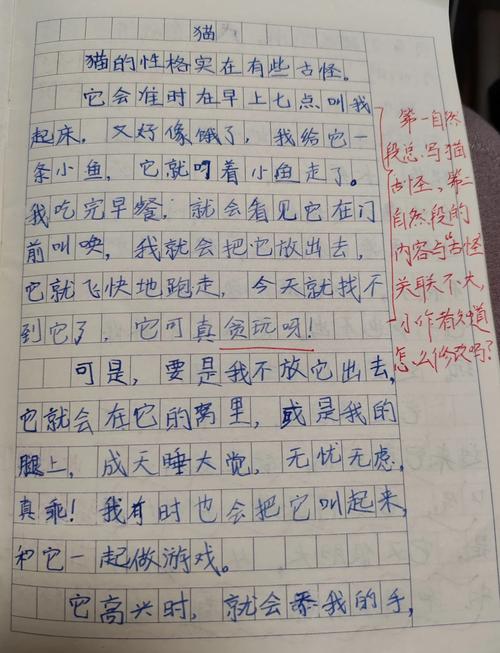 猫
猫的性格实在有些古怪。
它会准时在早上七点叫我
起床，又好像饿了，我给它一
条小鱼，它就叼着小鱼走了。
我吃完早餐，就会看见它在门
前叫唤，我就会把它放出去，
它就飞快地跑走，今天就找不
到它了，它可真贪玩呀！
可是，要是我不放它出去，
它就会在它的窝里，或是我的
腿上，成天睡大觉，无忧无虑，
真乖！我有时也会把它叫起来，
和它一起做游戏。
它高兴时，就会舔我的手，
第一自然
段总写猫
古怪，第二
自然段的
内容与古怪
关联不大，
小作者知道
怎么修改吗？